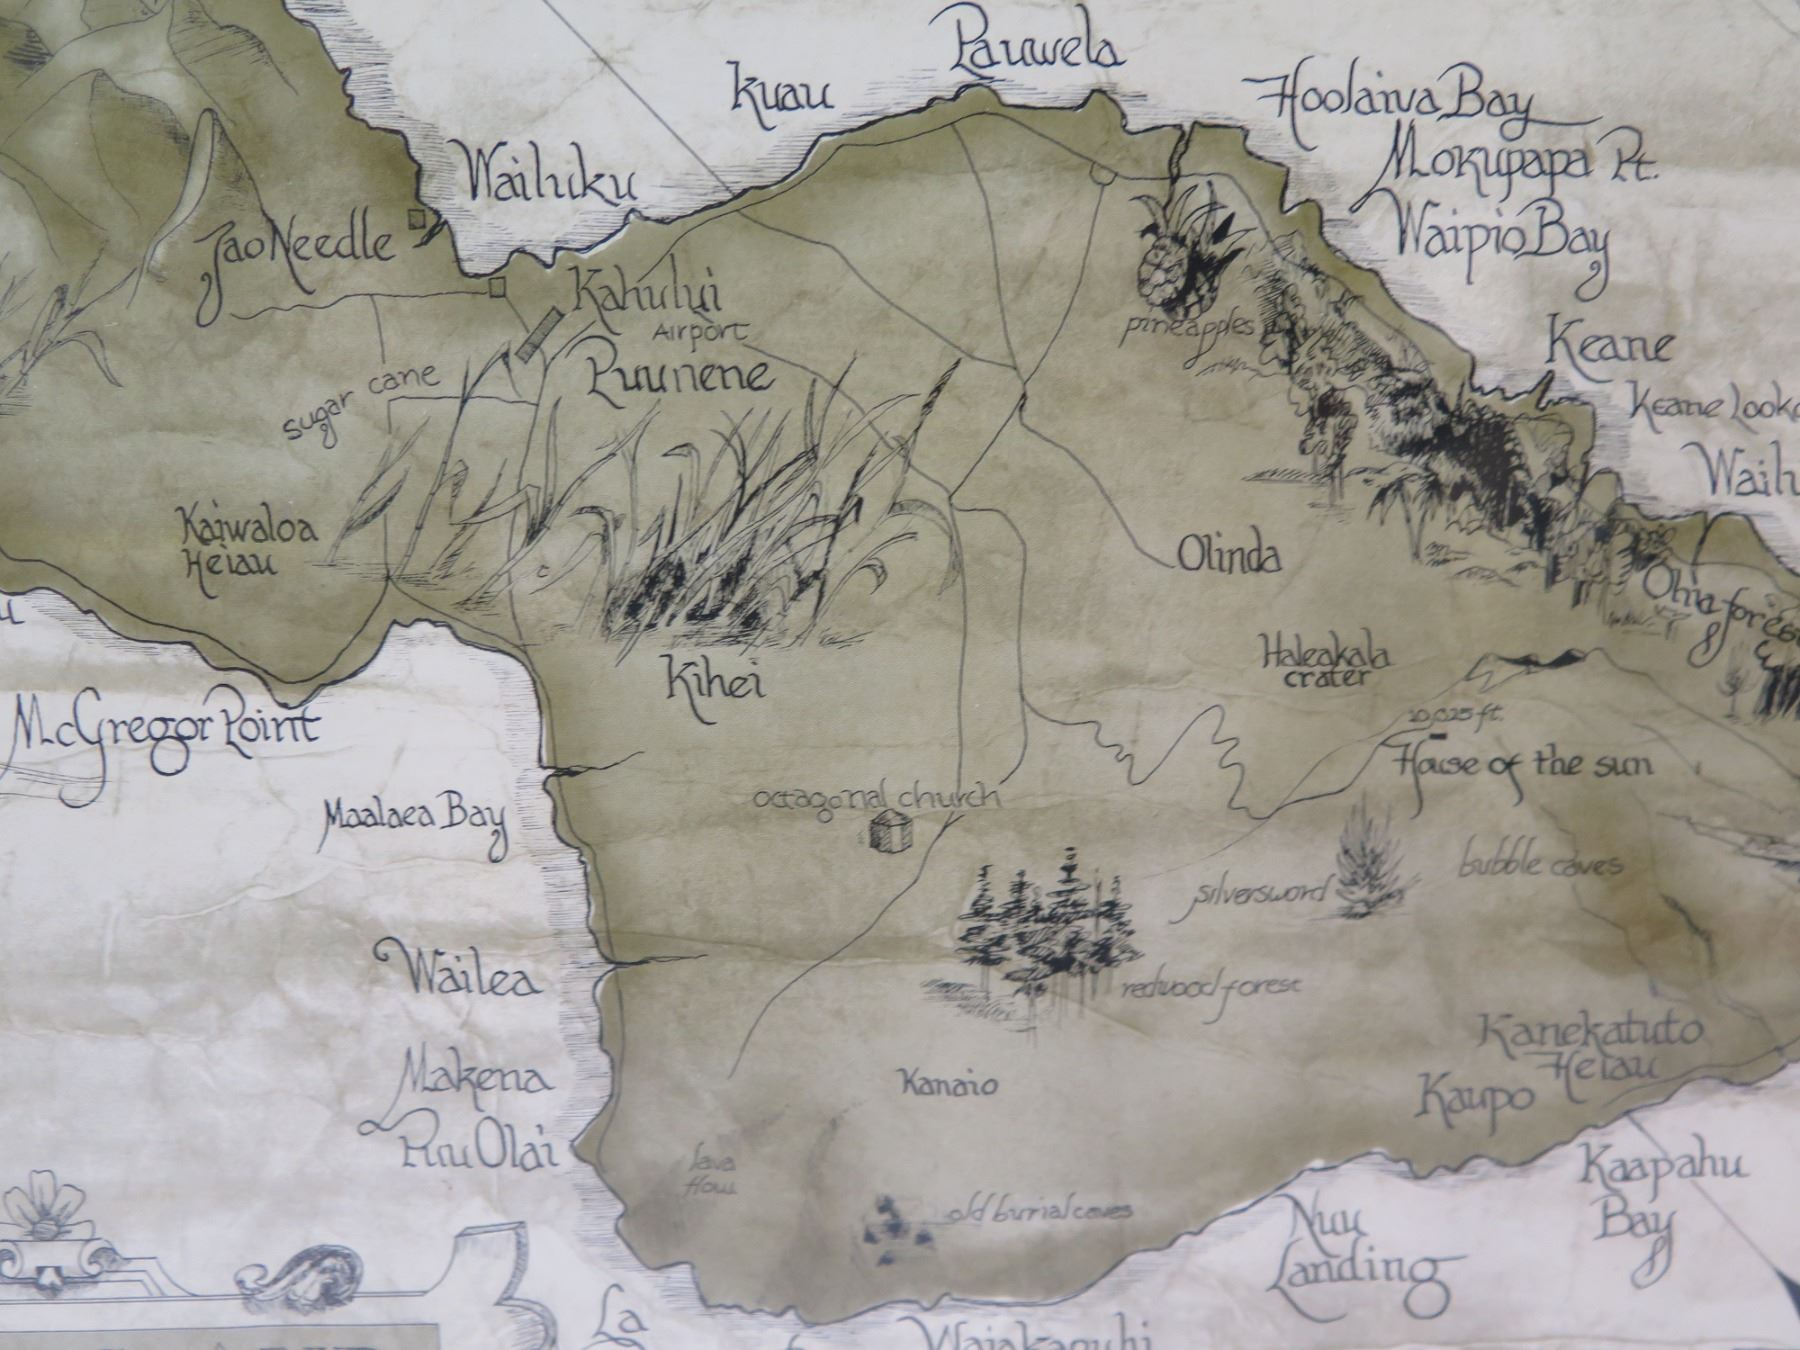 Pauwela
Kuau
Hoolaiva Bay
Mokupapa Pt.
Wailuku
Waipio Bay
Jao Needle
Kahului
Airport
pineapples
Keane
Puunene
sugar cane
Keane
Kaiwaloa
Heiau
Olinda
Ohia forest
Haleakala
crater
Kihei
10,025 ft.
McGregor Point
House of the sun
octagonal church
Maalaea Bay
bubble caves
silversword
Wailea
redwood forest
Kanekatuto
Heiau
Makena
Kanaio
Kaupo
Puu Olai
lava
flow
Kaapahu
Bay
old burial caves
Nuu
Landing
La